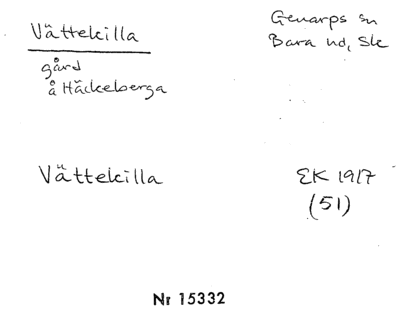 Vättekilla
Genarps sn
Bara hd, Sk
gård
å Häckeberga
Vättekilla
EK 1917
(51)
Nr 15332